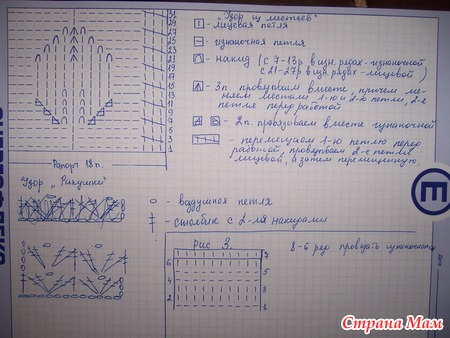 "Узор из листьев"
I - лицевая петля
— - изнаночная петля
∩ - накид (с 7-13р в изн. рядах - изнаночной
с 21-27р в изн. рядах - лицевой)
- 3п провязываем вместе, причем ме-
няем местами 1-ю и 2-ю петли, 2-я
петля перед работой
- 2п. провязываем вместе изнаночной
- перемещаем 1-ю петлю перед
работой, провязываем 2-е петли
лицевой, а затем перемещенную
31
29
27
25
23
21
19
17
15
13
11
9
7
5
3
1
Рапорт 18п.
Узор "Ракушки"
о - воздушная петля
‡ - столбик с 2-мя накидами
Рис 3.
8-й ряд провязать изнаночными
7
6
5
4
3
2
1
E
Страна Мам